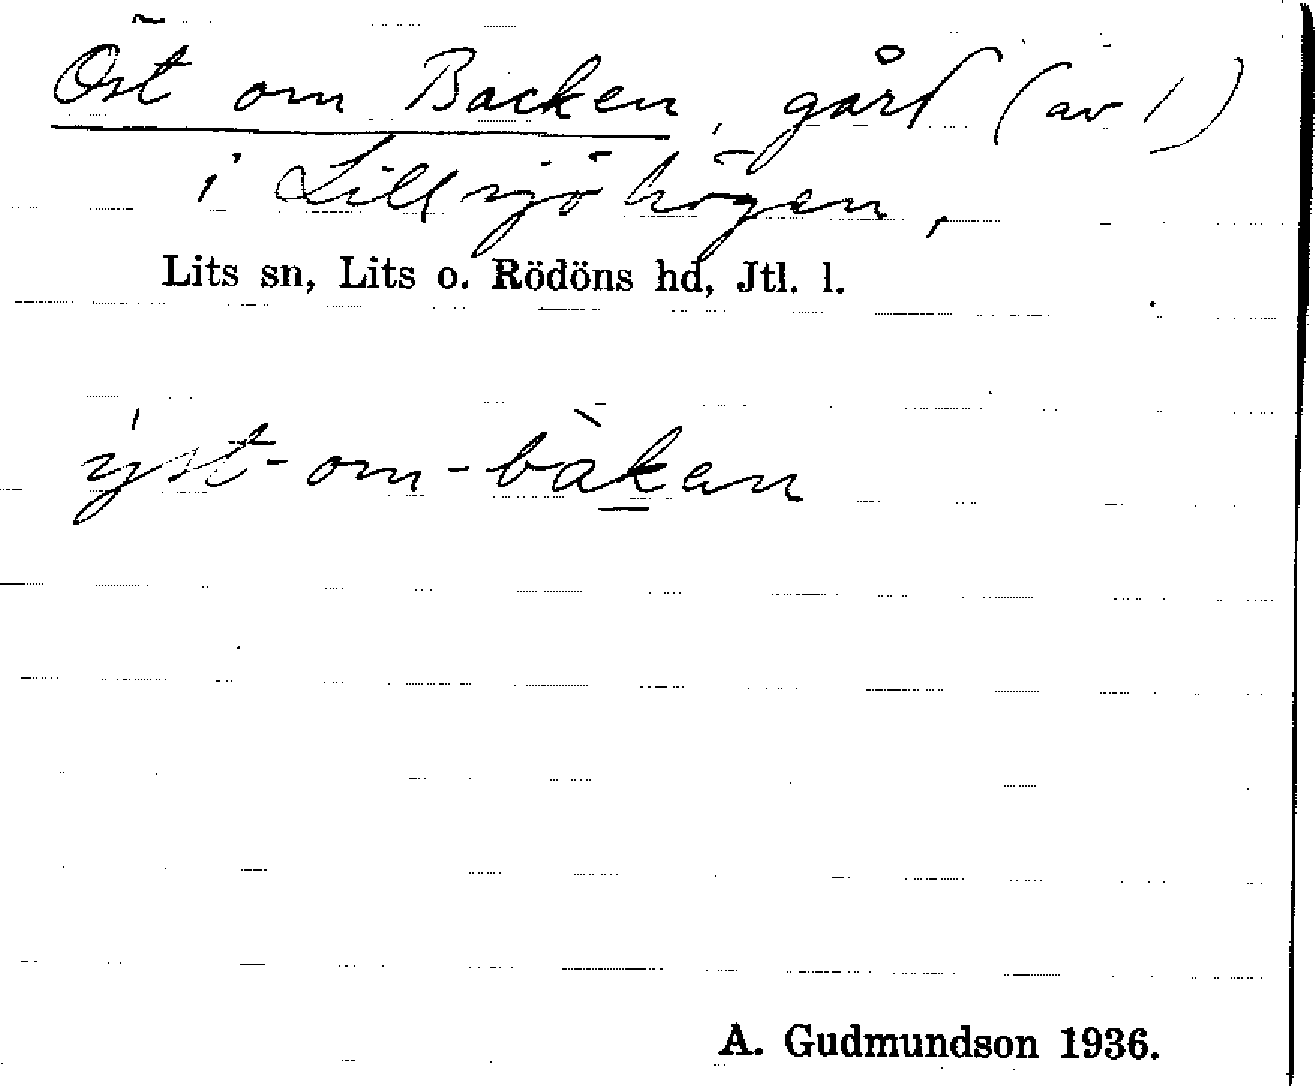 Öst om Backen, gård (av 1)
i Lillsjöhögen,
Lits sn, Lits o. Rödöns hd, Jtl. l.
ýst-om-bàkan
A. Gudmundson 1936.